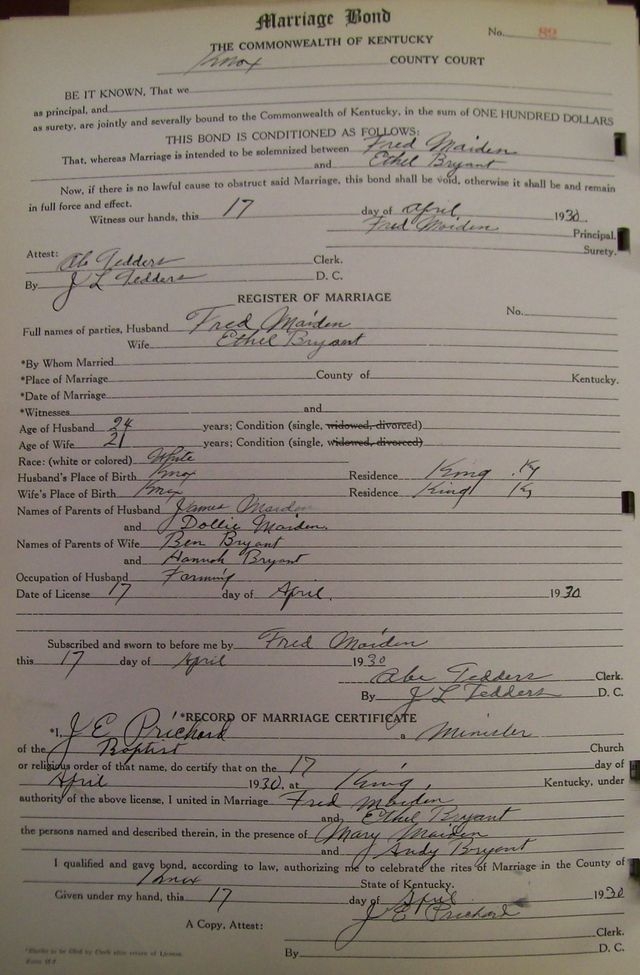 Marriage Bond
No. 82
THE COMMONWEALTH OF KENTUCKY
Knox COUNTY COURT
BE IT KNOWN, That we
as principal, and
as surety, are jointly and severally bound to the Commonwealth of Kentucky, in the sum of ONE HUNDRED DOLLARS
THIS BOND IS CONDITIONED AS FOLLOWS:
That, whereas Marriage is intended to be solemnized between Fred Maiden
and Ethel Bryant
Now, if there is no lawful cause to obstruct said Marriage, this bond shall be void, otherwise it shall be and remain
in full force and effect.
Witness our hands, this 17 day of April 1930
Fred Maiden Principal.
Surety.
Attest:
Abe Tedders Clerk.
By J L Tedders D. C.
REGISTER OF MARRIAGE
No.
Full names of parties, Husband Fred Maiden
Wife Ethel Bryant
*By Whom Married
*Place of Marriage County of Kentucky.
*Date of Marriage
*Witnesses and
Age of Husband 24 years; Condition (single, widowed, divorced)
Age of Wife 21 years; Condition (single, widowed, divorced)
Race: (white or colored) White
Husband's Place of Birth Knox Residence King Ky
Wife's Place of Birth Knox Residence King Ky
Names of Parents of Husband James Maiden
and Dollie Maiden.
Names of Parents of Wife Ben Bryant
and Hannah Bryant
Occupation of Husband Farming
Date of License 17 day of April. 1930
Subscribed and sworn to before me by Fred Maiden
this 17 day of April 1930
Abe Tedders Clerk.
By J L Tedders D. C.
*RECORD OF MARRIAGE CERTIFICATE
*I, J E Prichard a Minister
of the Baptist Church
or religious order of that name, do certify that on the 17 day of
April 1930, at King, Kentucky, under
authority of the above license, I united in Marriage Fred Maiden
and Ethel Bryant
the persons named and described therein, in the presence of Mary Maiden
and Andy Bryant
I qualified and gave bond, according to law, authorizing me to celebrate the rites of Marriage in the County of
Knox State of Kentucky.
Given under my hand, this 17 day of April 1930
J E Prichard
A Copy, Attest: Clerk.
By D. C.
*Blanks to be filled by Clerk after return of License